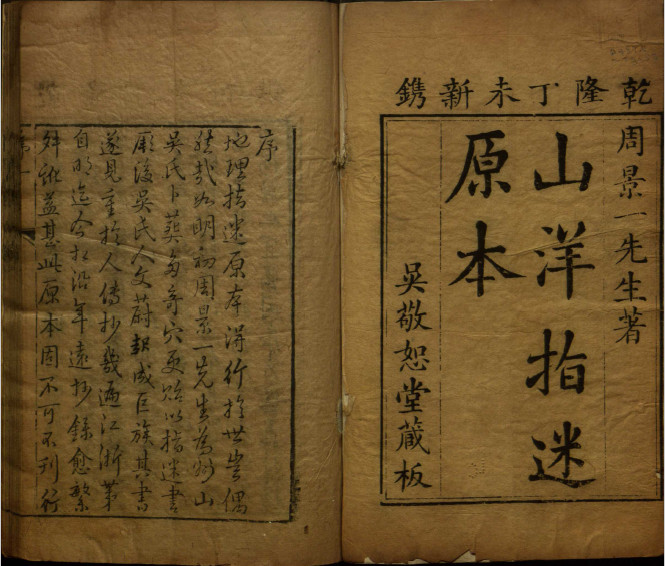 乾隆丁未新鐫
周景一先生著
山洋指迷
原本
吳敬恕堂藏板
序
地理指迷原本得行於世豈偶
然哉如明初周景一先生為山
吳氏卜葬多奇穴更貽以指迷書
厥後吳氏人文蔚起成巨族其書
遂見重於人傳抄幾遍江浙第
自明迄今相沿年遠抄錄愈繁
舛訛益甚此原本固不可不刊行